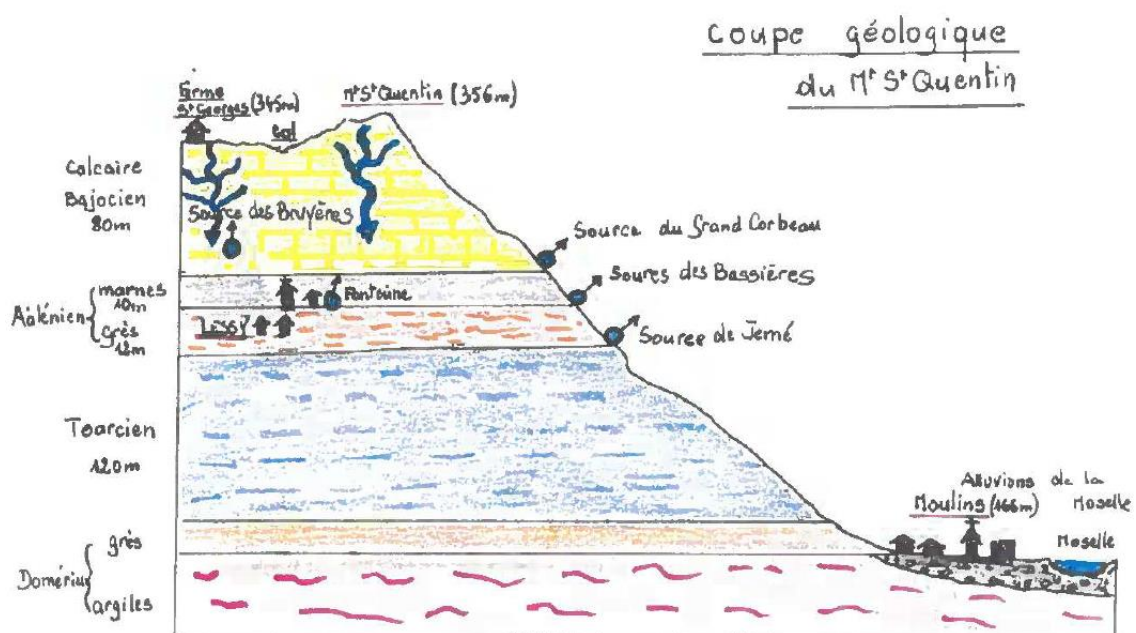 Coupe géologique
du Mt St Quentin
Ferme
St Georges (345m)
Col
Mt St Quentin (356m)
Calcaire
Bajocien
80m
Source des Bruyères
Source du Grand Corbeau
Soures des Bassières
Aalénien
marnes
10m
Fontaine
grès
12m
LESSY
Source de Jemé
Toarcien
120m
Alluvions de la
Moselle
Moulins (166m)
Moselle
grès
argiles